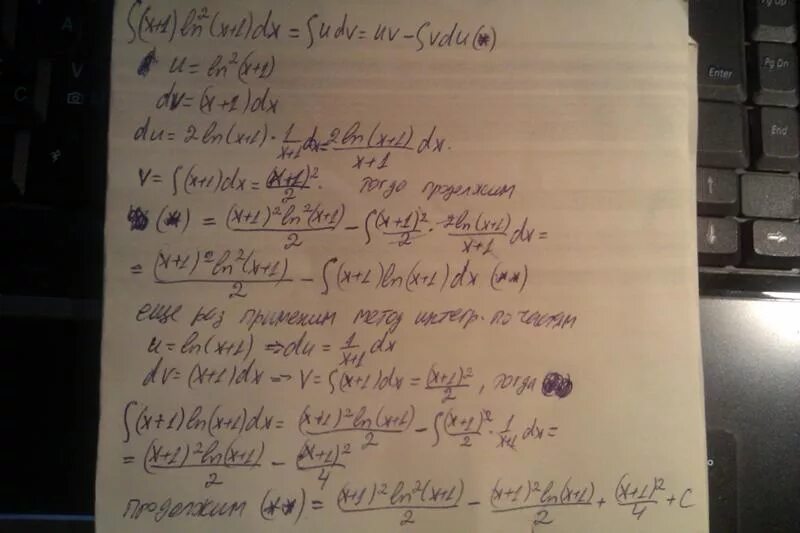 ∫(x+1) ln²(x+1)dx = ∫u dv = uv - ∫v du (*)
u = ln²(x+1)
dv = (x+1)dx
du = 2ln(x+1) · 1/(x+1) dx = 2ln(x+1)/(x+1) dx.
v = ∫(x+1)dx = (x+1)²/2. Тогда продолжим
(*) = (x+1)² ln²(x+1)/2 - ∫(x+1)²/2 · 2ln(x+1)/(x+1) dx =
= (x+1)² ln²(x+1)/2 - ∫(x+1) ln(x+1) dx (**)
еще раз применим метод интегр. по частям
u = ln(x+1) => du = 1/(x+1) dx
dv = (x+1)dx => v = ∫(x+1)dx = (x+1)²/2, тогда
∫(x+1) ln(x+1)dx = (x+1)² ln(x+1)/2 - ∫(x+1)²/2 · 1/(x+1) dx =
= (x+1)² ln(x+1)/2 - (x+1)²/4
продолжим (**) = (x+1)² ln²(x+1)/2 - (x+1)² ln(x+1)/2 + (x+1)²/4 + C
Enter
Pg Up
Pg Dn
End
A
C
V